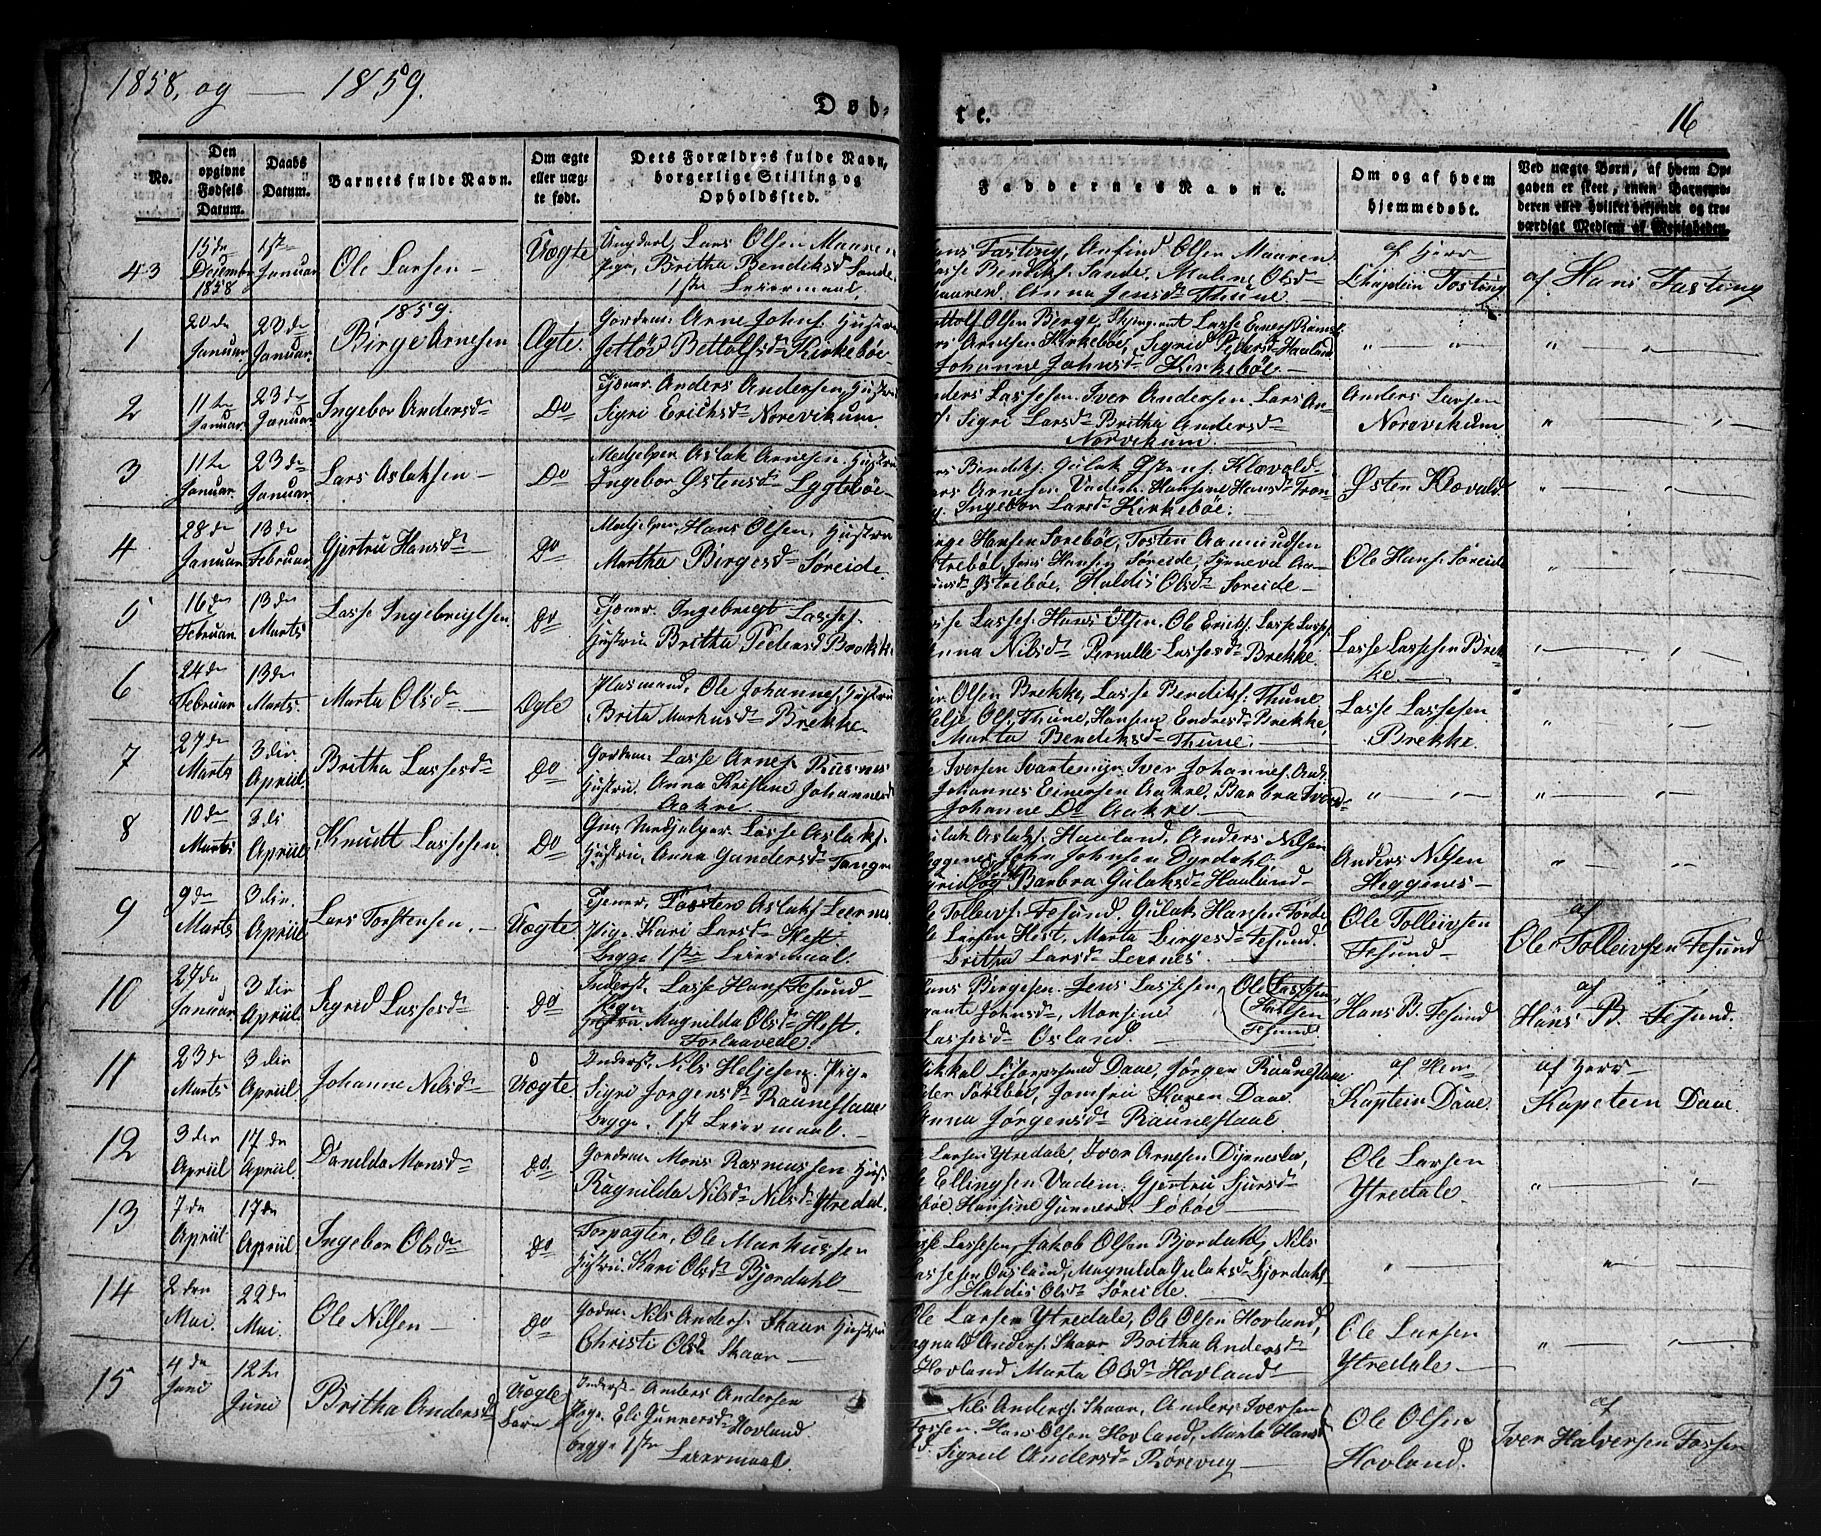 1858, og — 1859.
Døb- te.
16
No.
Den opgivne Fødsels Datum.
Daabs Datum.
Barnets fulde Navn.
Om ægte eller uægte født.
Dets Forældres fulde Navn, borgerlige Stilling og Opholdssted.
Faddernes Navne.
Om og af hvem hjemmedøbt.
Ved uægte Børn, af hvem Opgaven er skeet, enten Barnemoderen eller hvilket bekjendt og troværdigt Medlem af Menigheden.
43
15de December 1858
1ste Januar
Ole Larsen —
Uægte
Ungkarl, Lars Olsen Mauren
Pige, Britha Bendiksd Sande
1ste Leiermaal
Hans Fasting, Anfind Olsen Mauren
Lasse Bendiks. Sande, Maline Olsd
Mauren Anna Jensd Thune
af Herr
Chaplein Fasting
af Hans Fasting
1859.
1
20de Januar
23de Januar
Birge Arnesen
Ægte.
Gordm: Arne Johns. Hustru
Jetlöv Bottolfsd Kirkebøe
Bottolf Olsen Berge, Lasse Eners
Arnesen Kirkebøe, Sigrid Pedersd Haaland
Johanne Johnsd Kirkebøe —
2
11te Januar
23de Januar
Ingebor Andersd
Do
Tjener. Anders Andersen Hustru
Sigri Erichsd Norevikum
Anders Lassesen. Iver Andersen. Lars An-
Sigri Larsd Britha Andersd
Norvikum
Anders Larsen
Norevikum
3
11te Januar
23de Januar
Lars Aslaksen —
Do
Medjelper Aslak Arnesen. Hustru
Ingebor Østensd Lygtebøe
Lars Bendiks. Gulak Østens. Klævold
Lars Arnesen Vadem. Hansine Hansd
Ingebor Larsd Kirkebøe.
Østen Klævold
4
28de Januar
13de Februar
Gjertru Hansd
Do
Medjelper, Hans Olsen, Hustru
Martha Birgesd Søreide.
Birge Hansen Torebøe, Tosten Aamundsen
Østrebøe, Jens Hansen Søreide, Synneva Aa-
Østrebøe, Haldis Olsd Søreide —
Ole Hans. Søreide
5
16de Februar
13de Marts
Lasse Ingebrigtsen
Do
Tjener, Ingebrigt Lasses.
Hustru Britha Pedersd Brekke
Lasse Lasses. Hans Olsen. Ole Eriks. Lasse Lasses.
Anna Nilsd Pernille Lassesd Brekke.
Lasse Lassesen Brek-
ke.
6
24de Februar
13de Marts.
Marta Olsd
Ægte
Plasmand, Ole Johannes. Hustru
Brita Markusd Brekke
Olsen Brekke, Lasse Bendiks. Thune
Helje Ols. Thune, Hansine Endresd Brekke,
Marta Bendiksd Thune.
Lasse Lassesen
Brekke.
7
27de Marts
3die Apriil
Britha Lassesd
Do
Gordem. Lasse Arnes.
Hustru. Anna Kristine Johannesd
Aakre —
Iversen Svartemyr, Iver Johannes.
Johannes Einersen Aakre, Barbra Iversd
Johanne Do Aakre
8
10de Marts
3di Apriil
Knudt Lassesen
Do
Gm. Medjelper. Lasse Aslaks.
Hustru. Anna Gundersd
Aslak Aslaks. Haaland, Anders Nilsen
Heggenes John Johnsen Dyrdahl
og Barbra Gulaksd Haaland —
Anders Nilsen
Heggenes —
9
9de Marts
3die Apriil
Lars Torstensen. —
Uægte
Tjener, Tosten Aslaks Leernes
Pige. Kari Larsd Hest
begge 1ste Leiermaal
Ole Tolleivs. Fesund. Gulak Hansen Førde
Larsen Hest, Marta Birgesd Fesund.
Britha Larsd Leernes.
Ole Tolleivsen
Fesund —
af
Ole Tolleivsen Fesund
10
27de Januar
3die Apriil
Sigrid Lassesd
Do
Inderst. Lasse Hans Fesund —
Pigen Magnilda Olsd Hest.
Forlaavede.
Hans Birgesen. Jens Lassesen
Johnsd, Monsine
Lassesd Osland. —
Ole Lassesen
Fesund
Hans B. Fesund
af
Hans B. Fesund.
11
23de Marts
3die Apriil
Johanne Nilsd
Uægte
Inderst. Nils Heljesen, Pige
Sigri Jorgensd Raunestaae
begge. 1st Leiermaal. —
Daae, Jørgen Raunestaae
Jomfru Karen Daae
Anna Jørgensd Raunestaae
af Herr
Kaptein Daae.
af Herr
Kaptein Daae.
12
3den Apriil
17de Apriil
Danilda Monsd
Do
Gordem. Mons Rasmussen Hust.
Ragnilda Nilsd Nilsd Ytredal.
Larsen Ytredale, Iver Arnesen
Ellingsen Vadem. Gjertru Sjursd
Hansine Gunnersd Løbøe —
Ole Larsen
Ytredale.
13
7de Apriil
17de Apriil
Ingebor Olsd
Do
Forpagter, Ole Markussen
Hustru Kari Olsd Bjordahl
Lasse Lassesen Jakob Olsen Bjordahl, Nils
Lassesen Osland, Magnilda Gulaksd Bjordahl
Haldis Olsd Søreide.
14
2den Mai.
22de Mai.
Ole Nilsen —
Do
Gordem Nils Anders. Skaar Hustru
Christi Olsd Skaar —
Ole Larsen Ytredale, Ole Olsen Hovland,
Anders. Skaar Britha Andersd
Hovland Marta Olsd Hovland
Ole Larsen
Ytredale —
15
4de Juni
12te Juni
Britha Andersd
Uægte Barn
Inderst. Anders Andersen
Pige. Eli Gunnersd Hovland
begge 1ste Leiermaal.
Nils Anders. Skaar, Anders Iversen
Fossen. Hans Olsen Hovland, Marta Hansd
Sigrid Andersd Rørevig —
Ole Olsen
Hovland.
af
Iver Halversen Fossen